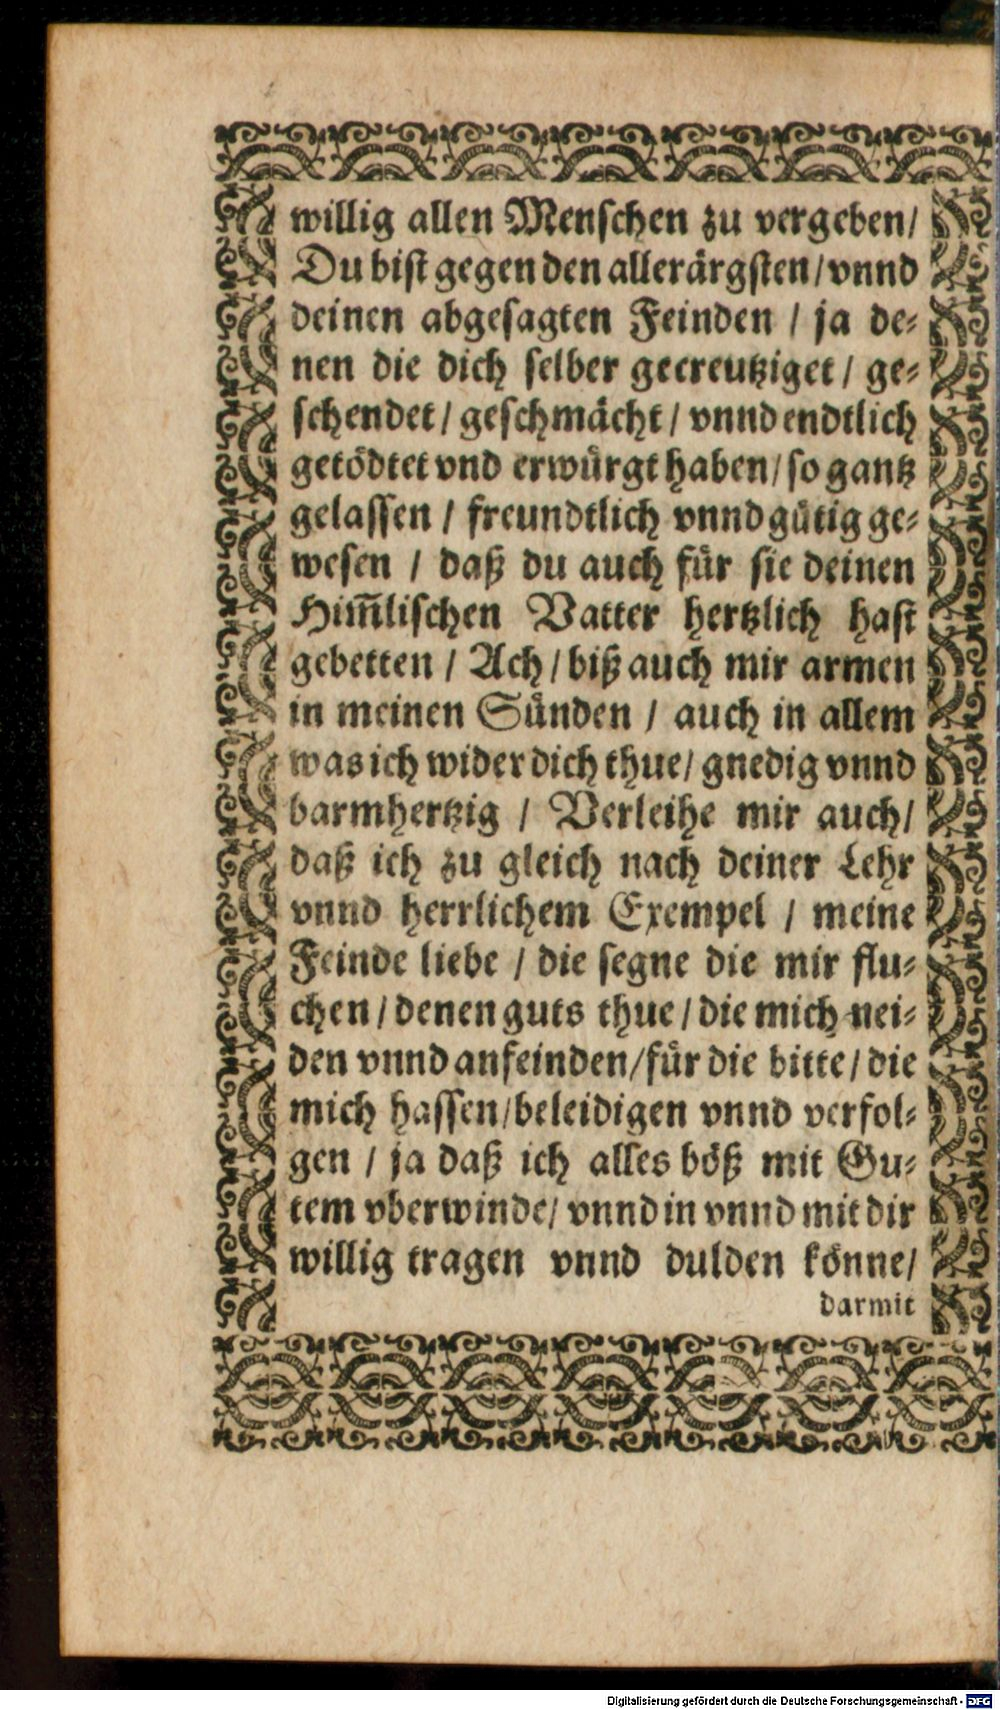 willig allen Menschen zu vergeben/
Du bist gegen den allerärgsten/ vnnd
deinen abgesagten Feinden / ja de-
nen die dich selber gecreutziget / ge-
schendet / geschmächt / vnnd endtlich
getödtet vnd erwürgt haben/ so gantz
gelassen / freundtlich vnnd gütig ge-
wesen / daß du auch für sie deinen
Him̄lischen Vatter hertzlich hast
gebetten / Ach / biß auch mir armen
in meinen Sünden / auch in allem
was ich wider dich thue/ gnedig vnnd
barmhertzig / Verleihe mir auch/
daß ich zu gleich nach deiner Lehr
vnnd herrlichem Exempel / meine
Feinde liebe / die segne die mir flu-
chen / denen guts thue / die mich nei-
den vnnd anfeinden/ für die bitte / die
mich hassen/ beleidigen vnnd verfol-
gen / ja daß ich alles böß mit Gu-
tem vberwinde/ vnnd in vnnd mit dir
willig tragen vnnd dulden könne/
darmit
Digitalisierung gefördert durch die Deutsche Forschungsgemeinschaft - DFG